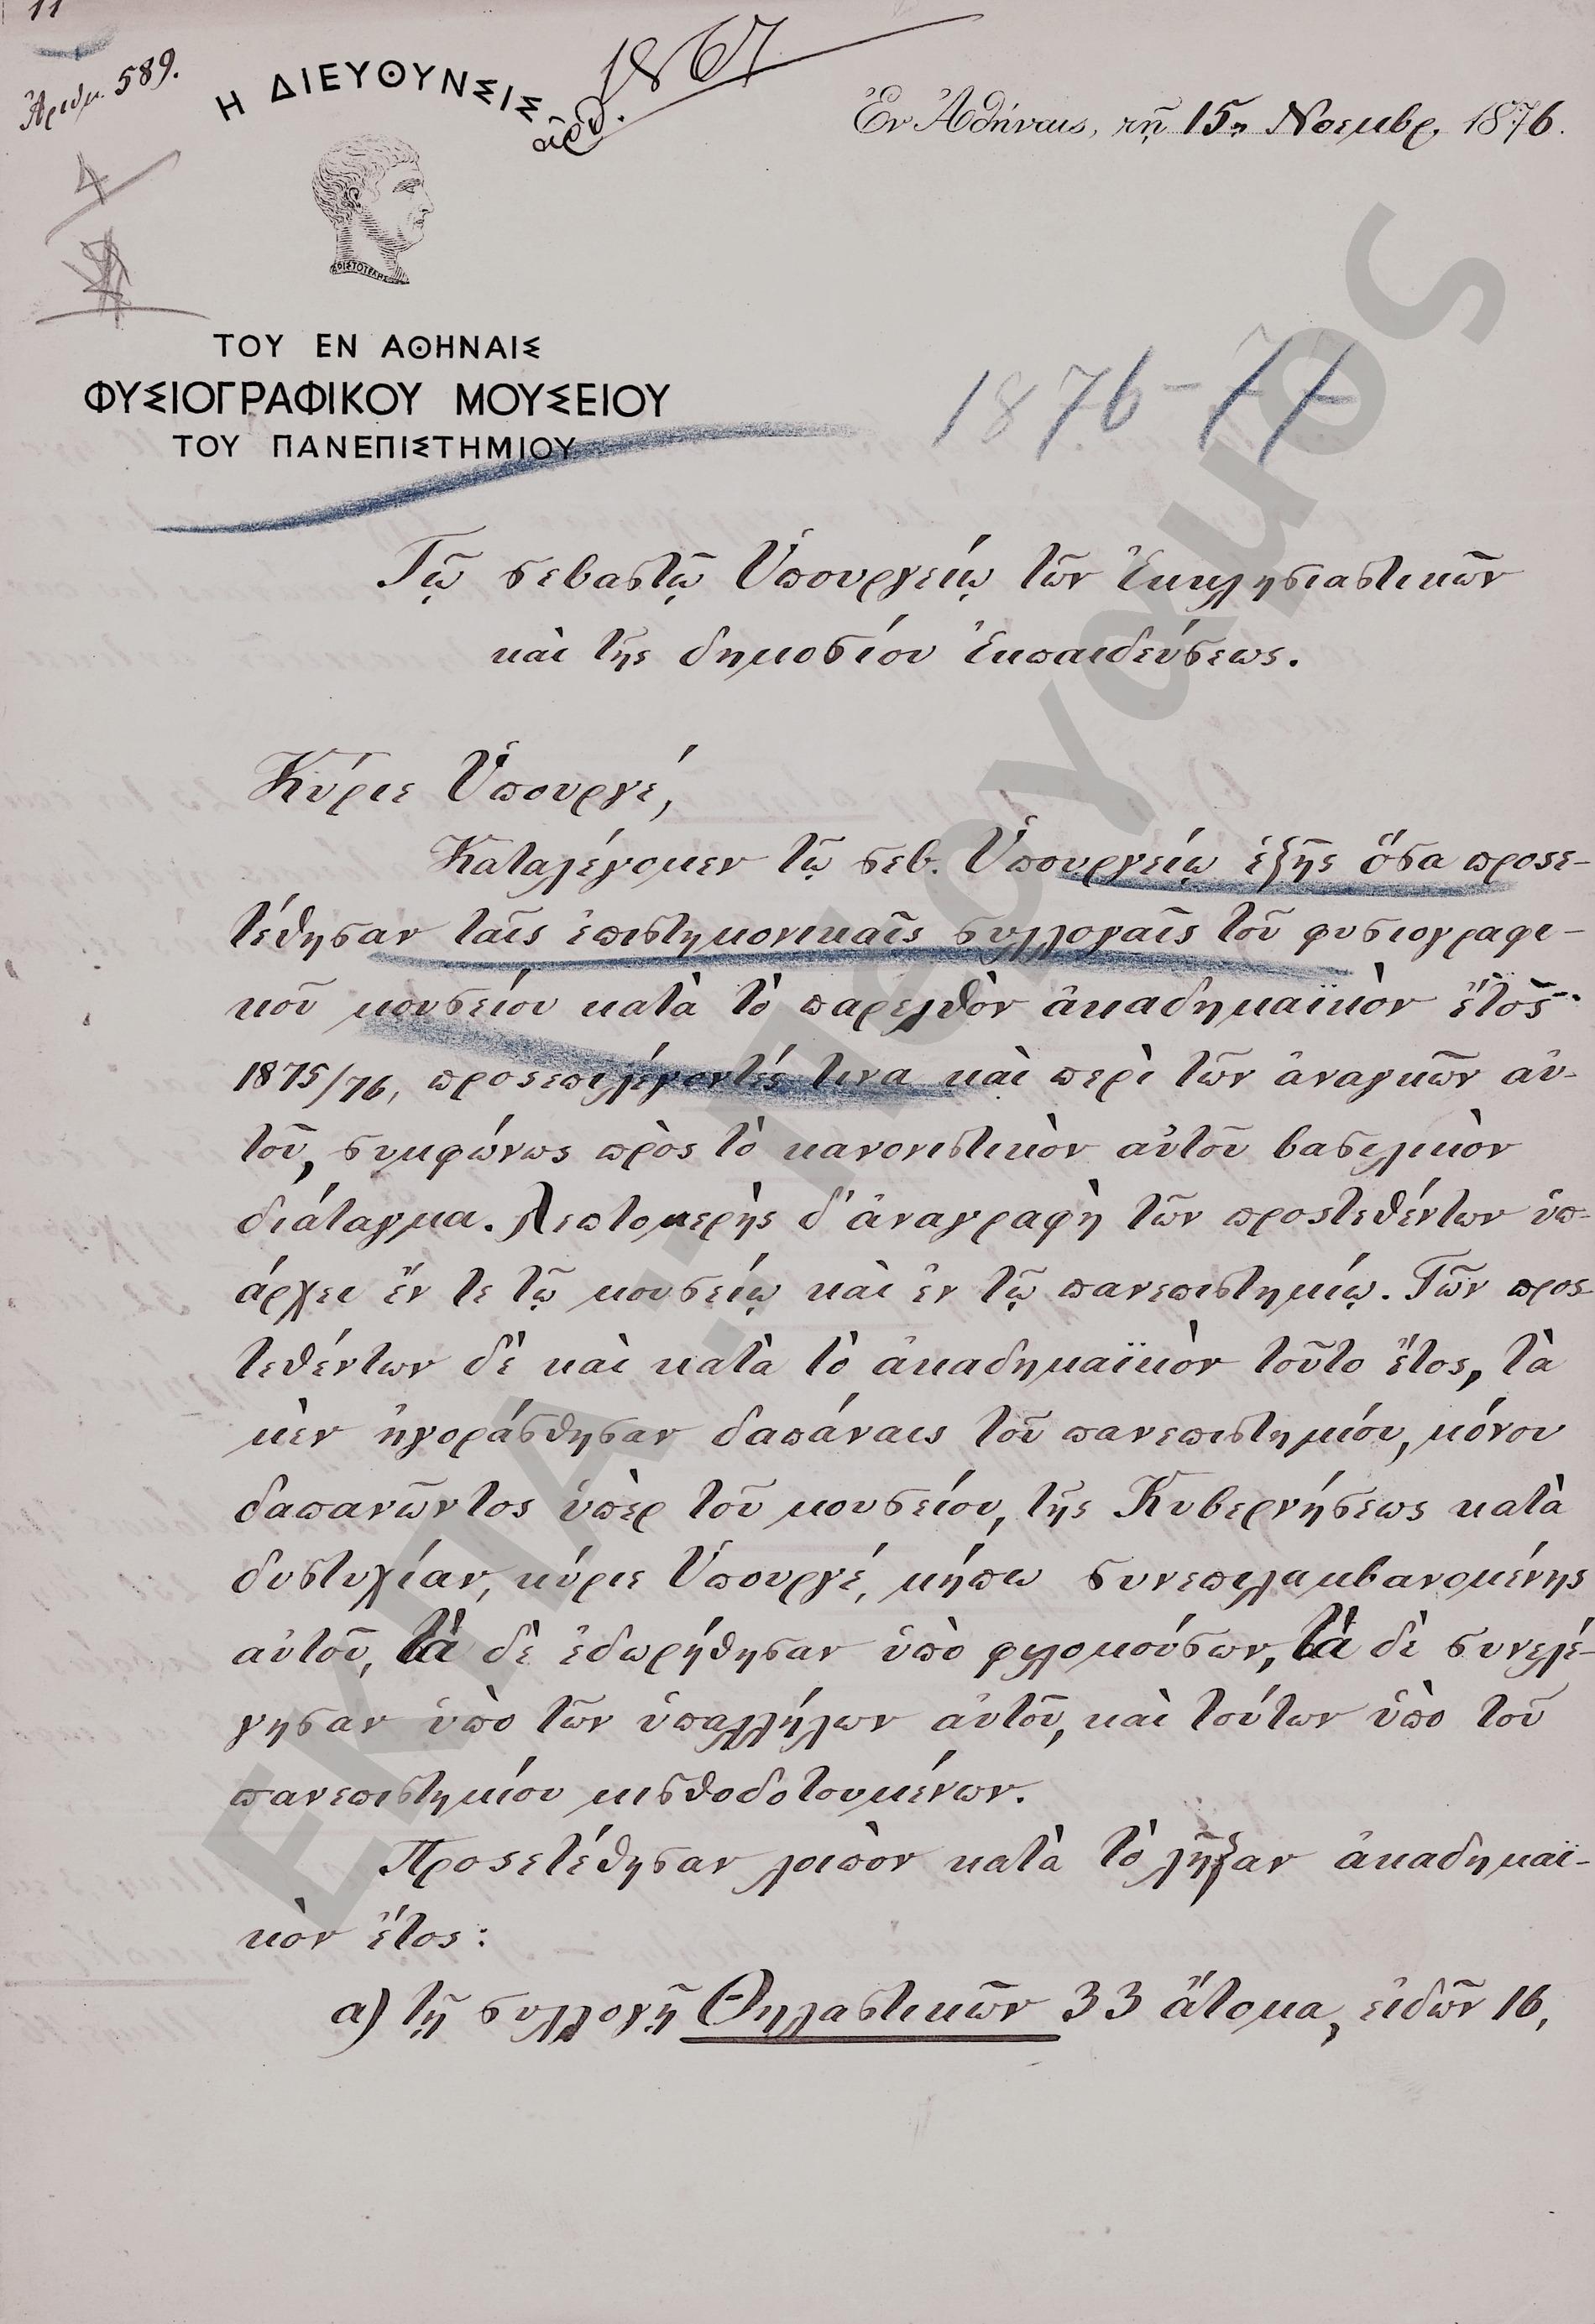 11
Ἀριθμ. 589.
Η ΔΙΕΥΘΥΝΣΙΣ
ἀρθ. 1867
Ἐν Ἀθήναις, τῇ 15ῃ Νοεμβρ. 1876.
4
ΑΡΙΣΤΟΤΕΛΗΣ
ΤΟΥ ΕΝ ΑΘΗΝΑΙΣ
ΦΥΣΙΟΓΡΑΦΙΚΟΥ ΜΟΥΣΕΙΟΥ
ΤΟΥ ΠΑΝΕΠΙΣΤΗΜΙΟΥ
1876-77
Τῷ σεβαστῷ Ὑπουργείῳ τῶν Ἐκκλησιαστικῶν
καὶ τῆς δημοσίου ἐκπαιδεύσεως.
Κύριε Ὑπουργέ,
Καταλέγομεν τῷ σεβ. Ὑπουργείῳ ἑξῆς ὅσα προσε-
τέθησαν ταῖς ἐπιστημονικαῖς συλλογαῖς τοῦ φυσιογραφι-
κοῦ μουσείου κατὰ τὸ παρελθὸν ἀκαδημαϊκὸν ἔτος
1875/76, προσεπιλέγοντές τινα καὶ περὶ τῶν ἀναγκῶν αὐ-
τοῦ, συμφώνως πρὸς τὸ κανονιστικὸν αὐτοῦ βασιλικὸν
διάταγμα. Λεπτομερὴς δ' ἀναγραφὴ τῶν προστεθέντων ὑπ-
άρχει ἔν τε τῷ μουσείῳ καὶ ἐν τῷ πανεπιστημίῳ. Τῶν προς
τεθέντων δὲ καὶ κατὰ τὸ ἀκαδημαϊκὸν τοῦτο ἔτος, τὰ
μὲν ἠγοράσθησαν δαπάναις τοῦ πανεπιστημίου, μόνου
δαπανῶντος ὑπὲρ τοῦ μουσείου, τῆς Κυβερνήσεως κατὰ
δυστυχίαν, κύριε Ὑπουργέ, μήπω συνεπιλαμβανομένης
αὐτοῦ, τὰ δὲ ἐδωρήθησαν ὑπὸ φιλομούσων, τὰ δὲ συνελέ-
γησαν ὑπὸ τῶν ὑπαλλήλων αὐτοῦ, καὶ τούτων ὑπὸ τοῦ
πανεπιστημίου μισθοδοτουμένων.
Προσετέθησαν λοιπὸν κατὰ τὸ λῆξαν ἀκαδημαϊ-
κὸν ἔτος:
α) τῇ συλλογῇ Θηλαστικῶν 33 ἄτομα, εἰδῶν 16,
ΕΚΠΑ...Πέργαμος